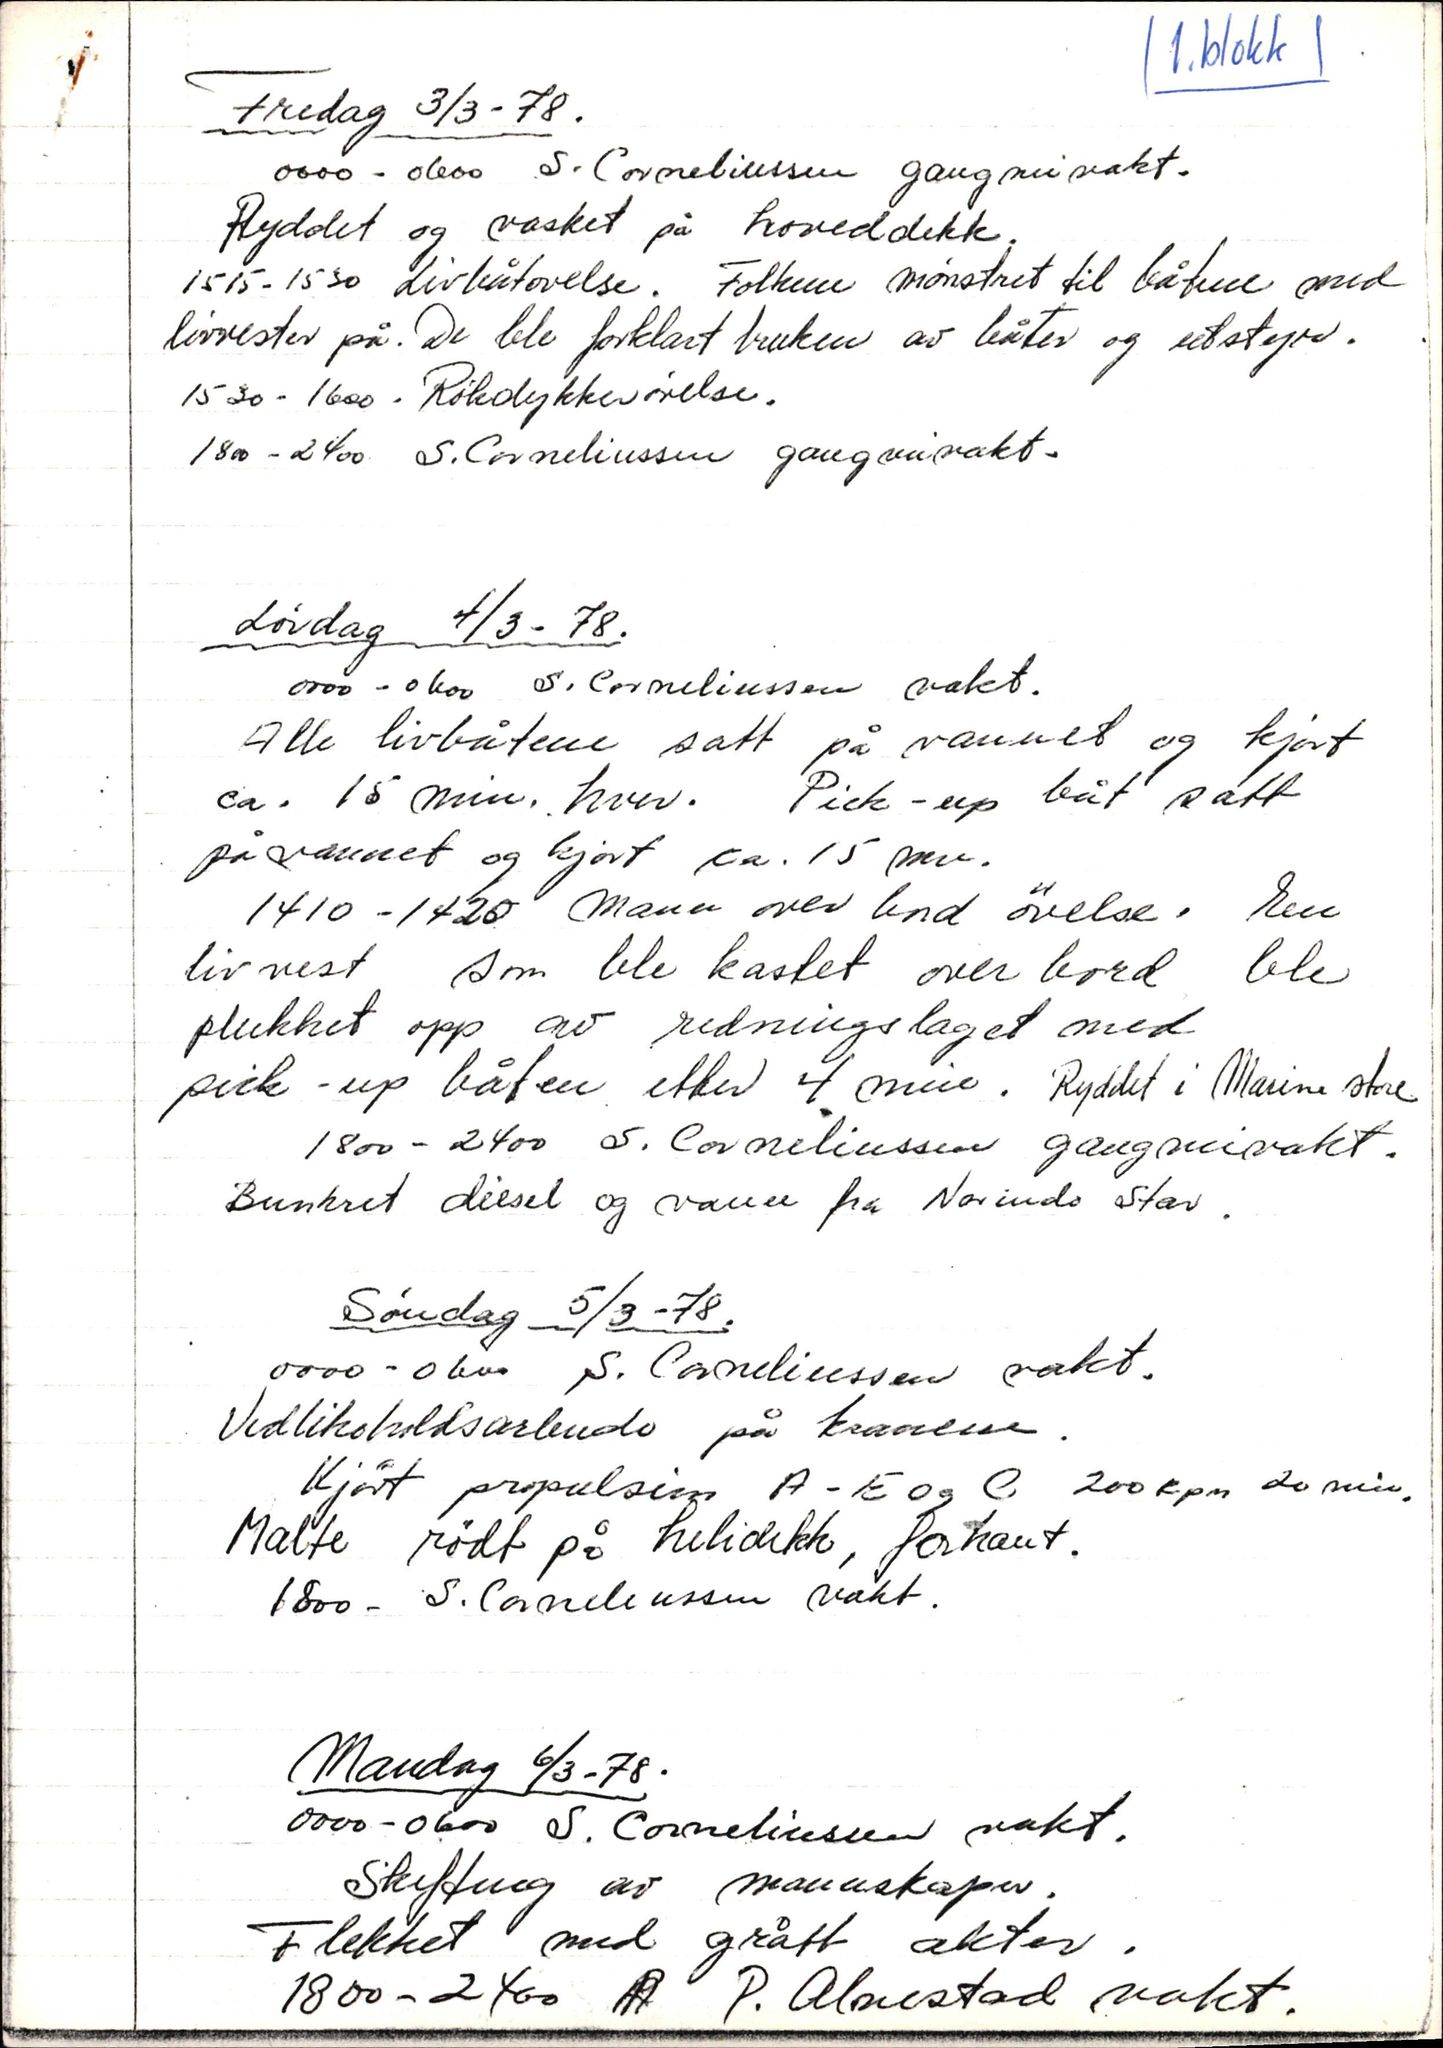 1. blokk
Fredag 3/3-78.
0000 - 0600 S. Corneliussen gangveivakt.
Ryddet og vasket på hoveddekk.
1515-1530 Livbåtovelse. Folkene mønstret til båtene med
livvester på. De ble forklart bruken av båter og utstyr.
1530 - 1600. Røkdykkerøvelse.
1800 - 2400 S. Corneliussen gangveivakt.
Lørdag 4/3 - 78.
0000 - 0600 S. Corneliussen vakt.
Alle livbåtene satt på vannet og kjørt
ca. 15 min. hver. Pick-up båt satt
på vannet og kjørt ca. 15 min.
1410 - 1420 Mann over bord övelse. En
livvest som ble kastet over bord ble
plukket opp av redningslaget med
pick-up båten etter 4 min. Ryddet i Marine store
1800 - 2400 S. Corneliussen gangveivakt.
Bunkret diesel og vann fra Norindo Star.
Søndag 5/3-78.
0000 - 0600 S. Corneliussen vakt.
Vedlikeholdsarbeide på kranene.
Kjørt propulsion A - E og C 200 rpm 20 min.
Malte rödt på helidekk, forkant.
1800 - S. Corneliussen vakt.
Mandag 6/3-78.
0000 - 0600 S. Corneliussen vakt.
Skifting av mannskaper.
Flekket med grått akter.
1800 - 2400 P. Almestad vakt.